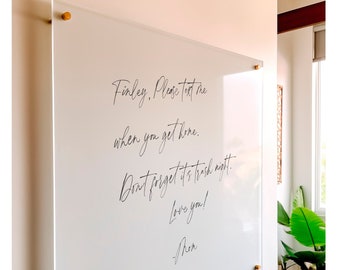 Finley, Please text me
when you get home.
Don't forget it's trash night.
Love you!
-Mom